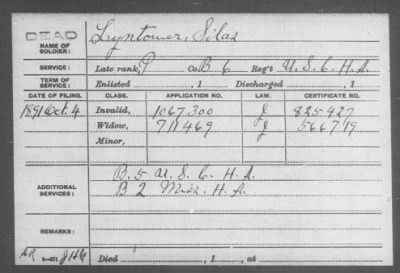 DEAD
NAME OF SOLDIER: Lyntower, Silas
SERVICE: Late rank, P Co. B. 6 Reg't U.S.C.H.A.
TERM OF SERVICE: Enlisted , 1 Discharged , 1
DATE OF FILING. CLASS. APPLICATION NO. LAW. CERTIFICATE NO.
1891 Oct. 4 Invalid, 1067300 J 825427
Widow, 711469 J 566719
Minor,
ADDITIONAL SERVICES: B. 5 U.S.C.H.A.
B 2 Miss. H.A.
REMARKS:
Died , 1 , at